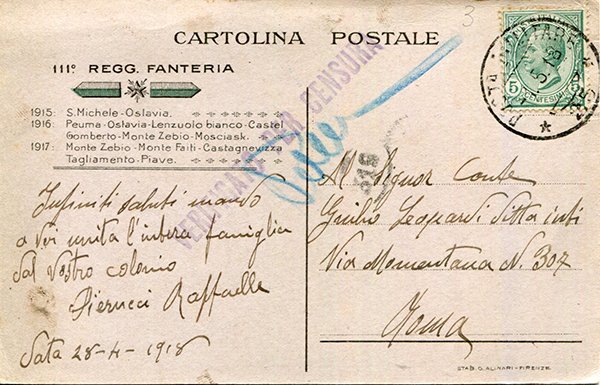 3
CARTOLINA POSTALE
111º REGG. FANTERIA
1915: S. Michele - Oslavia.
1916: Peuma - Oslavia - Lenzuolo bianco - Castel
Gomberto - Monte Zebio - Mosciask.
1917: Monte Zebio - Monte Faiti - Castagnevizza
Tagliamento - Piave.
VERIFICATO PER CENSURA
318
5 CENTESIMI
POSTA MILITARE
Infiniti saluti mando
a voi unita l'intera famiglia
dal vostro colonio
Pierucci Raffaelle
Data 28-4-1918
Al Signor Conte
Giulio Leopardi Ditta
Via Momentana N. 307
Roma
STAB. G. ALINARI - FIRENZE